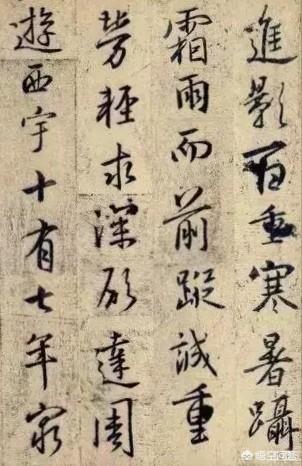 進影百重寒暑躡
霜雨而前蹤誠重
勞輕求深願達周
遊西宇十有七年窮
悟空问答